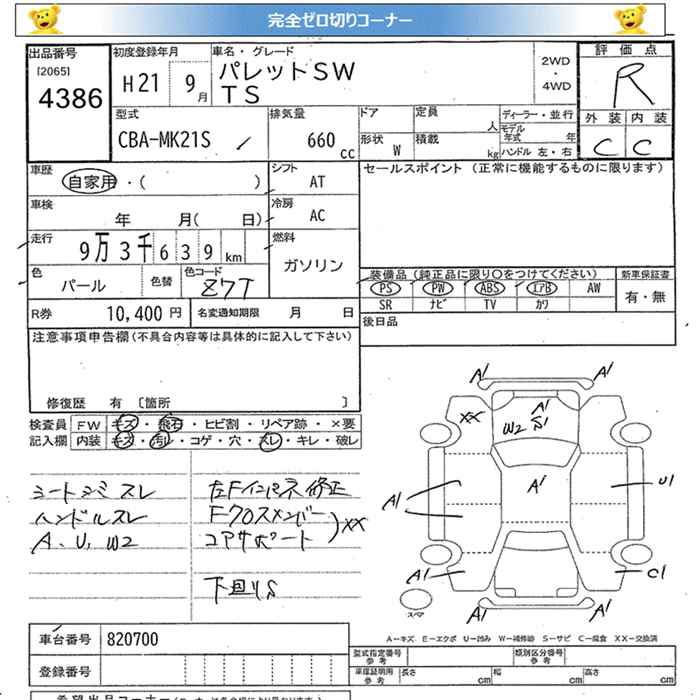 完全ゼロ切りコーナー
出品番号 初度登録年月 車名・グレード 評価点
[2065] 4386 H21 9月 パレットSW TS 2WD・4WD R
型式 排気量 ドア 定員 人 ディーラー・並行 外装 内装
CBA-MK21S 660cc 形状 W 積載 kg モデル年式 年 ハンドル 左・右 C C
車歴 自家用・( ) シフト AT セールスポイント (正常に機能するものに限ります)
車検 年 月( 日) 冷房 AC
走行 9万3千639km 燃料 ガソリン
色 パール 色替 色コード Z7T
装備品 (純正品に限り○をつけてください) 新車保証書
PS PW ABS エアB AW 有・無
SR ナビ TV カワ
R券 10,400円 名変通知期限 月 日 後日品
注意事項申告欄(不具合内容等は具体的に記入して下さい)
修復歴 有 〔箇所 〕
検査員 FW キズ・飛石・ヒビ割・リペア跡・×要
記入欄 内装 キズ・汚レ・コゲ・穴・スレ・キレ・破レ
シートシミ スレ
ハンドルスレ
A、U、W2
左Fインパネ修正
Fクロスメンバー
コアサポート
XX
下回りS
A1 A1
XX A1
W2 S1
A1
A1 U1
A1 C1
スペア A1 A1
A-キズ E-エクボ U-凹み W-補修跡 S-サビ C-腐食 XX-交換済
車台番号 820700
登録番号
型式指定番号 参考 類別区分番号 参考
車庫証明用 参考 長さ cm 幅 cm 高さ cm